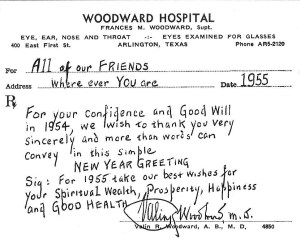 WOODWARD HOSPITAL
FRANCES M. WOODWARD, Supt.
EYE, EAR, NOSE AND THROAT -:- EYES EXAMINED FOR GLASSES
400 East First St. ARLINGTON, TEXAS Phone AR5-2129
For All of our FRIENDS
Address where ever You are Date 1955
R
For your Confidence and Good Will
in 1954, we wish to thank you very
sincerely and more than words can
Convey in this simple
NEW YEAR GREETING
Sig: For 1955 take our best wishes for
your Spiritual Wealth, Prosperity, Happiness
and GOOD HEALTH
Valin R. Woodward M.D.
Valin R. Woodward, A. B., M. D. 4880